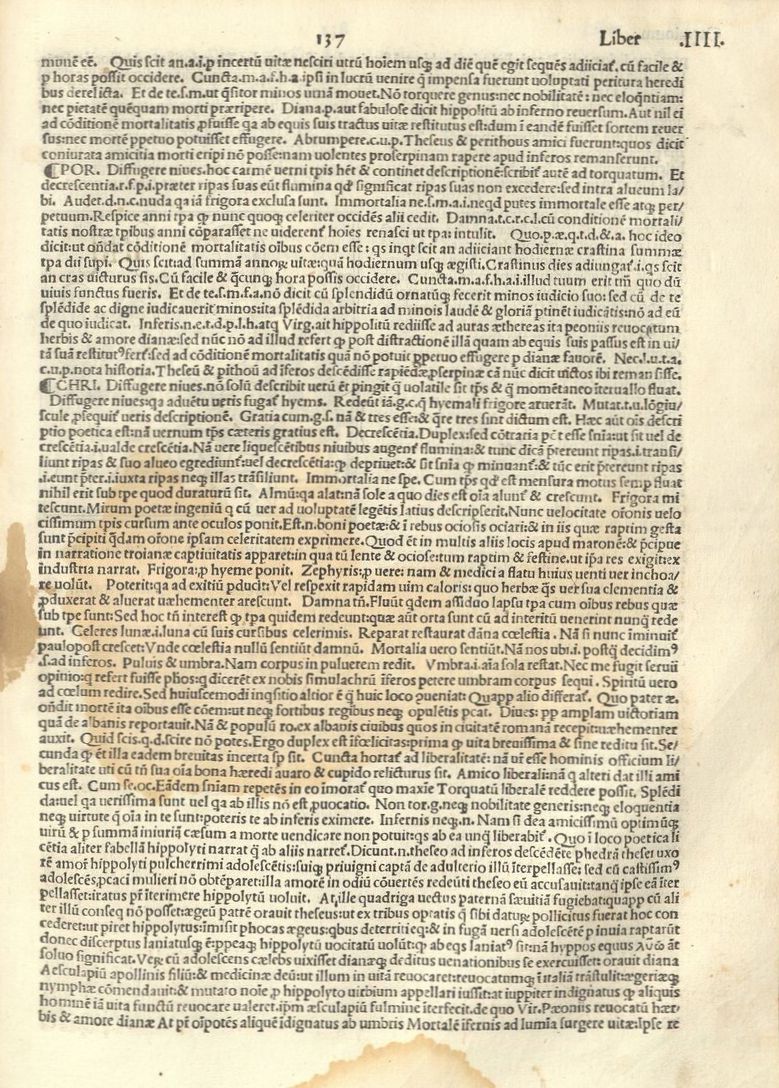 137 Liber .IIII.
mune eē. Quis scit an.a.i.p incertū uitæ nesciri utrū hoiem usq ad diē quē egit sequēs adiiciat. cū facile &
p horas possit occidere. Cuncta.m.a.f.h.a ipsi in lucrū uenire q impensa fuerunt uoluptati peritura heredi
bus derelicta. Et de te.s.m.ut qsitor minos urnā mouet. Nō torquere genus: nec nobilitatē: nec eloqntiam:
nec pietatē quēquam morti præripere. Diana.p.aut fabulose dicit hippolitū ab inferno reuersum. Aut nil ei
ad cōditionē mortalitatis pfuisse qa ab equis suis tractus uitæ restitutus est: dum i eandē fuisset sortem reuer
sus: nec mortē ppetuo potuisset effugere. Abrumpere.c.u.p. Theseus & perithous amici fuerunt: quos dicit
coniurata amicitia morti eripi nō posse: nam uolentes proserpinam rapere apud inferos remanserunt.
¶POR. Diffugere niues. hoc carmē uerni tpis hēt & continet descriptionē: scribit autē ad torquatum. Et
decrescentia.r.f.p.i. præter ripas suas eūt flumina qd significat ripas suas non excedere: sed intra alueum la/
bi. Audet.d.n.c. nuda qa iā frigora exclusa sunt. Immortalia ne.s.m.a.i. neqd putes immortale esse atq per/
petuum. Respice anni tpa q nunc quoq celeriter occidēs alii cedit. Damna.t.c.r.c.l. cū conditionē mortali/
tatis nostræ tpibus anni cōparasset ne uiderent hoies renasci ut tpa: intulit. Quo.p.æ.q.t.d.&.a. hoc ideo
dicit: ut ondat cōditionē mortalitatis oibus cōem esse: qs inqt scit an adiiciant hodiernæ crastina summæ
tpa dii supi. Quis scit: ad summā annoɤ uitæ: quā hodiernum usq ægisti. Crastinus dies adiungat.i. qs scit
an cras uicturus sis. Cū facile & qcunq hora possis occidere. Cuncta.m.a.f.h.a.i. illud tuum erit tm̄ quo dū
uiuis functus fueris. Et de te.s.m.f.a. nō dicit cū splendidū ornatūq fecerit minos iudicio suo: sed cū de te
splēdide ac digne iudicauerit minos: ita splēdida arbitria ad minois laudē & gloriā ptinēt iudicātis: nō ad eū
de quo iudicat. Inferis.n.e.t.d.p.l.h. atq Virg. ait hippolitū rediisse ad auras æthereas ita peoniis reuocatum
herbis & amore dianæ: sed nūc nō ad illud refert q post distractionē illā quam ab equis suis passus est in ui/
tā suā restitut' fert: sed ad cōditionē mortalitatis quā nō potuit ppetuo effugere p dianæ fauorē. Nec.l.u.t.a.
c.u.p. nota historia. Theseū & pithoū ad īferos descēdisse rapiēdæ pserpinæ cā nūc dicit uictos ibi remansisse.
¶CHRI. Diffugere niues. nō solū describit uerū ēt pingit q uolatile sit tps & q momētaneo īteruallo fluat.
Diffugere niues: qa aduētu ueris fugat hyems. Redeūt iā.g.c. q hyemali frigore aruerāt. Mutat.t.u. lōgiu/
scule psequit ueris descriptionē. Gratia cum.g.s. nā & tres esse: & qre tres sint dictum est. Hæc aut ois descri
ptio poetica est: nā uernum tps cæteris gratius est. Decrescētia. Duplex: sed cōtraria pēt esse snīa: ut sit uel de
crescētia.i. ualde crescētia. Nā uere liquescētibus niuibus augent flumina: & tunc dicā ptereunt ripas.i. transi/
liunt ripas & suo alueo egrediunt: uel decrescētia: q depriuet: & sit snīa q minuant: & tūc erit ptereunt ripas
.i. eunt pter.i. iuxta ripas neq illas trāsiliunt. Immortalia ne spe. Cum tps qd est mensura motus semp fluat
nihil erit sub tpe quod duraturū sit. Almū: qa alat: nā sole a quo dies est oia alunt & crescunt. Frigora mi
tescunt. Mirum poetæ ingeniū q cū uer ad uoluptatē legētis latius descripserit. Nunc uelocitate oronis uelo
cissimum tpis cursum ante oculos ponit. Est.n. boni poetæ: & i rebus ociosis ociari: & in iis quæ raptim gesta
sunt pcipiti qdam orone ipsam celeritatem exprimere. Quod ēt in multis aliis locis apud maronē: & pcipue
in narratione troianæ captiuitatis apparet: in qua tū lente & ociose: tum raptim & festine. ut ipa res exigit: ex
industria narrat. Frigora: p hyeme ponit. Zephyris: p uere: nam & medici a flatu huius uenti uer inchoa/
re uolūt. Poterit: qa ad exitiū pducit: Vel respexit rapidam uim caloris: quo herbæ qs uer sua clementia &
pduxerat & aluerat uæhementer arescunt. Damna tn̄. Fluūt qdem assiduo lapsu tpa cum oibus rebus quæ
sub tpe sunt: Sed hoc tn̄ interest q tpa quidem redeunt: quæ aūt orta sunt cū ad interitū uenerint nunq rede
unt. Celeres lunæ.i. luna cū suis cursibus celerimis. Reparat restaurat dāna cœlestia. Nā si nunc iminuit
paulopost crescet: Vnde cœlestia nullū sentiūt damnū. Mortalia uero sentiūt. Nā nos ubi.i. postq decidim'
.s. ad inferos. Puluis & umbra. Nam corpus in puluerem redit. Vmbra.i. aīa sola restat. Nec me fugit seruii
opinio: q refert fuisse phos: q dicerēt ex nobis simulachrū īferos petere umbram corpus sequi. Spiritū uero
ad cœlum redire. Sed huiuscemodi inqsitio altior ē q huic loco pueniat: Quapp alio differat. Quo pater æ.
ondit mortē ita oibus esse cōem: ut neq fortibus regibus neq opulētis pcat. Diues: pp amplam uictoriam
quā de albanis reportauit. Nā & populū ro. ex albanis ciuibus quos in ciuitatē romanā recepit: uæhementer
auxit. Quid scis.q.d. scire nō potes. Ergo duplex est īfœlicitas: prima q uita breuissima & sine reditu sit. Se/
cunda q ēt illa eadem breuitas incerta sp sit. Cuncta hortat ad liberalitatē: nā ut esse hominis officium li/
beralitate uti cū tn̄ sua oia bona hæredi auaro & cupido relicturus sit. Amico liberali: nā q alteri dat illi ami
cus est. Cum se.oc. Eādem sniam repetēs in eo īmorat quo maxie Torquatū liberalē reddere possit. Splēdi
da: uel qa uerissima sunt uel qa ab illis nō est puocatio. Non tor.g. neq nobilitate generis: neq eloquentia
neq uirtute q oia in te sunt: poteris te ab inferis eximere. Infernis neq.n. Nam si dea amicissimū optimūq
uirū & p summā iniuriā cæsum a morte uendicare non potuit: qs ab ea unq liberabit. Quo i loco poetica li
cētia aliter fabellā hippolyti narrat q ab aliis narret. Dicunt.n. theseo ad inferos descēdēte phedrā thesei uxo
rē amor hippolyti pulcherrimi adolescētis: suiq priuigni captā de adulterio illū īterpellasse: sed cū castissim'
adolescēs, pcaci mulieri nō obtēparet: illa amorē in odiū cōuertēs redeūti theseo eū accusauit: tanq ipse eā īter
pellasset: iratus pr īterimere hippolytū uoluit. At ille quadriga uectus paternā sæuitiā fugiebat: quapp cū ali
ter illū conseq nō posset: ægeū patrē orauit theseus: ut ex tribus optatis q sibi daturɤ pollicitus fuerat hoc con
cederet: ut piret hippolytus: īmisit phocas ægeus: qbus deterriti eq: & in fugā uersi adolescētē p inuia raptarūt
donec discerptus laniatusq ē: ppeaq hippolytū uocitatū uolūt: q ab eqs laniat' sit: nā hyppos equus λυω āt
soluo significat. Veɤ cū adolescens cælebs uixisset dianæq deditus uenationibus se exercuisset: orauit diana
Aesculapiū apollinis filiū: & medicinæ deū: ut illum in uitā reuocaret: reuocatumq ī italiā trāstulit: ægeriæq
nymphæ cōmendauit: & mutato noīe p hippolyto uirbium appellari iussit: at iuppiter indignatus q aliquis
hominē iā uita functū reuocare ualeret. ipm æsculapiū fulmine īterfecit. de quo Vir. Pæoniis reuocatū hær/
bis & amore dianæ At pr oipotēs aliquē īdignatus ab umbris Mortalē ifernis ad lumīa surgere uitæ: Ipse re